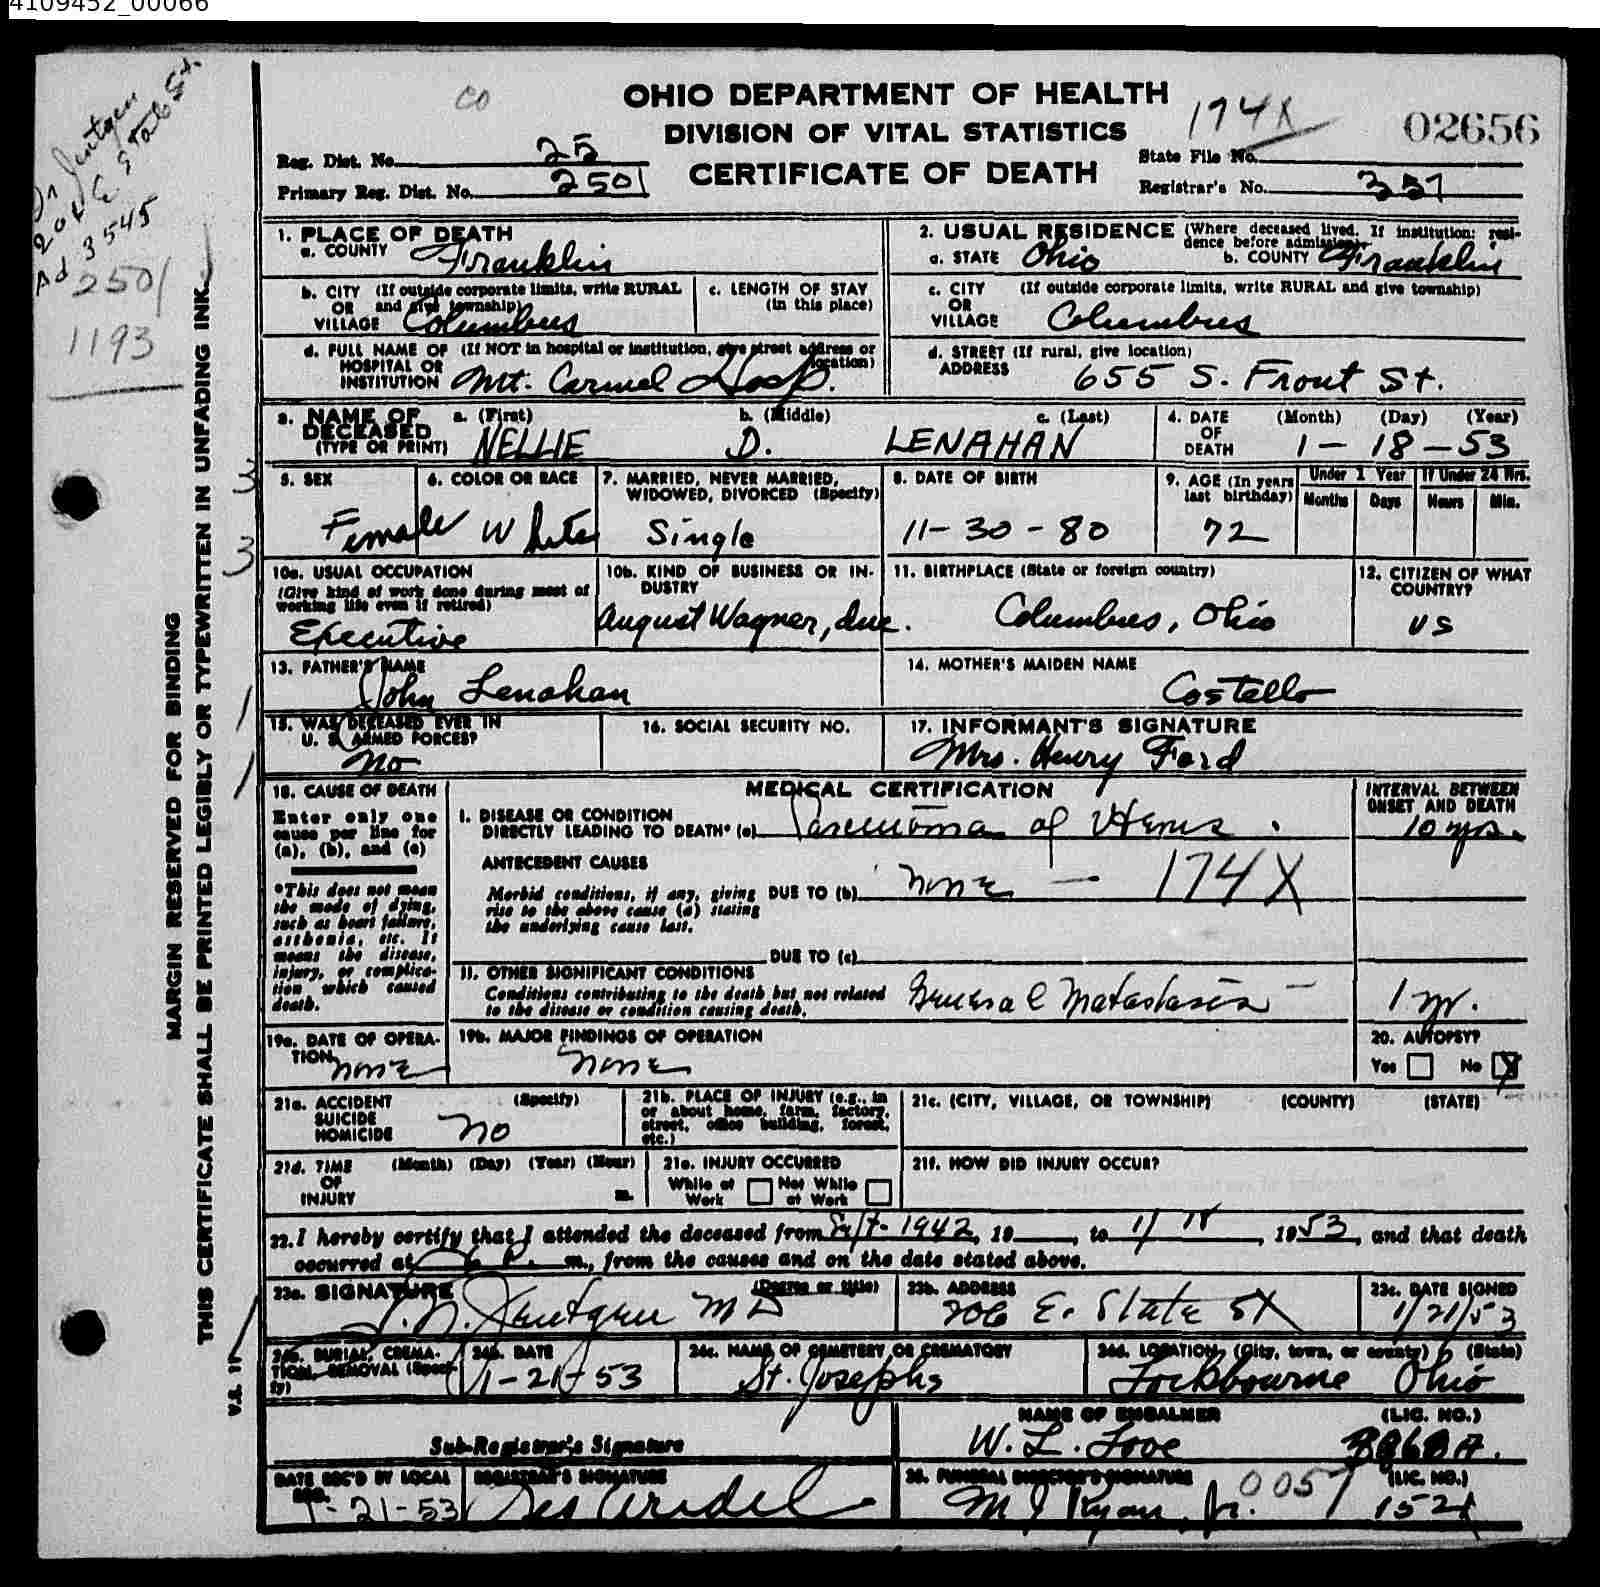 4109452_00066
CO
OHIO DEPARTMENT OF HEALTH
DIVISION OF VITAL STATISTICS
CERTIFICATE OF DEATH
174X
02656
Reg. Dist. No. 25
Primary Reg. Dist. No. 2501
State File No.
Registrar's No. 357
Dr Jentgen
206 E State St.
Ad 3545
2501
1193
MARGIN RESERVED FOR BINDING
THIS CERTIFICATE SHALL BE PRINTED LEGIBLY OR TYPEWRITTEN IN UNFADING INK
V.S. 1
3
3
1
1
1. PLACE OF DEATH
a. COUNTY Franklin
b. CITY (If outside corporate limits, write RURAL
OR and give township)
VILLAGE Columbus
c. LENGTH OF STAY
(in this place)
d. FULL NAME OF (If NOT in hospital or institution, give street address or
HOSPITAL OR location)
INSTITUTION Mt. Carmel Hosp.
2. USUAL RESIDENCE (Where deceased lived. If institution: resi-
dence before admission)
a. STATE Ohio b. COUNTY Franklin
c. CITY (If outside corporate limits, write RURAL and give township)
OR
VILLAGE Columbus
d. STREET (If rural, give location)
ADDRESS 655 S. Front St.
3. NAME OF a. (First) b. (Middle) c. (Last)
DECEASED
(TYPE OR PRINT) NELLIE D. LENAHAN
4. DATE (Month) (Day) (Year)
OF
DEATH 1-18-53
5. SEX
Female
6. COLOR OR RACE
White
7. MARRIED, NEVER MARRIED,
WIDOWED, DIVORCED (Specify)
Single
8. DATE OF BIRTH
11-30-80
9. AGE (In years
last birthday)
72
Under 1 Year
Months Days
If Under 24 Hrs.
Hours Min.
10a. USUAL OCCUPATION
(Give kind of work done during most of
working life even if retired)
Executive
10b. KIND OF BUSINESS OR IN-
DUSTRY
August Wagner, Inc.
11. BIRTHPLACE (State or foreign country)
Columbus, Ohio
12. CITIZEN OF WHAT
COUNTRY?
US
13. FATHER'S NAME
John Lenahan
14. MOTHER'S MAIDEN NAME
Costello
15. WAS DECEASED EVER IN
U. S. ARMED FORCES?
No
16. SOCIAL SECURITY NO.
17. INFORMANT'S SIGNATURE
Mrs. Henry Ford
18. CAUSE OF DEATH
Enter only one
cause per line for
(a), (b), and (c)
*This does not mean
the mode of dying,
such as heart failure,
asthenia, etc. It
means the disease,
injury, or complica-
tion which caused
death.
MEDICAL CERTIFICATION
I. DISEASE OR CONDITION
DIRECTLY LEADING TO DEATH* (a) Carcinoma of Uterus.
ANTECEDENT CAUSES
Morbid conditions, if any, giving DUE TO (b) none - 174X
rise to the above cause (a) stating
the underlying cause last.
DUE TO (c)
II. OTHER SIGNIFICANT CONDITIONS
Conditions contributing to the death but not related
to the disease or condition causing death.
General Matastasis
INTERVAL BETWEEN
ONSET AND DEATH
10 yrs.
1 yr.
19a. DATE OF OPERA-
TION none
19b. MAJOR FINDINGS OF OPERATION
none
20. AUTOPSY?
Yes No X
21a. ACCIDENT (Specify)
SUICIDE
HOMICIDE no
21b. PLACE OF INJURY (e.g., in
or about home, farm, factory,
street, office building, forest,
etc.)
21c. (CITY, VILLAGE, OR TOWNSHIP) (COUNTY) (STATE)
21d. TIME (Month) (Day) (Year) (Hour)
OF
INJURY m.
21e. INJURY OCCURRED
While at Not While
Work at Work
21f. HOW DID INJURY OCCUR?
22. I hereby certify that I attended the deceased from Sept. 1942, 19 , to 1/18, 1953, and that death
occurred at 6 P. m., from the causes and on the date stated above.
23a. SIGNATURE (Degree or title)
Jentgen MD
23b. ADDRESS
206 E. State St
23c. DATE SIGNED
1/21/53
24a. BURIAL, CREMA-
TION, REMOVAL (Speci-
fy)
24b. DATE
1-21-53
24c. NAME OF CEMETERY OR CREMATORY
St. Josephs
24d. LOCATION (City, town, or county) (State)
Lockbourne Ohio
Sub-Registrar's Signature
NAME OF EMBALMER (LIC. NO.)
W. L. Love
DATE REC'D BY LOCAL
REG.
1-21-53
REGISTRAR'S SIGNATURE
25. FUNERAL DIRECTOR'S SIGNATURE (LIC. NO.)
M J Ryan Jr. 0057